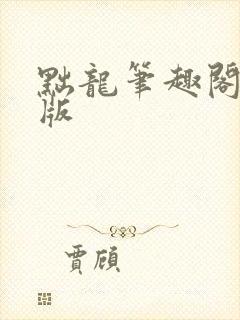 點龍筆趣閣
版
賈頎